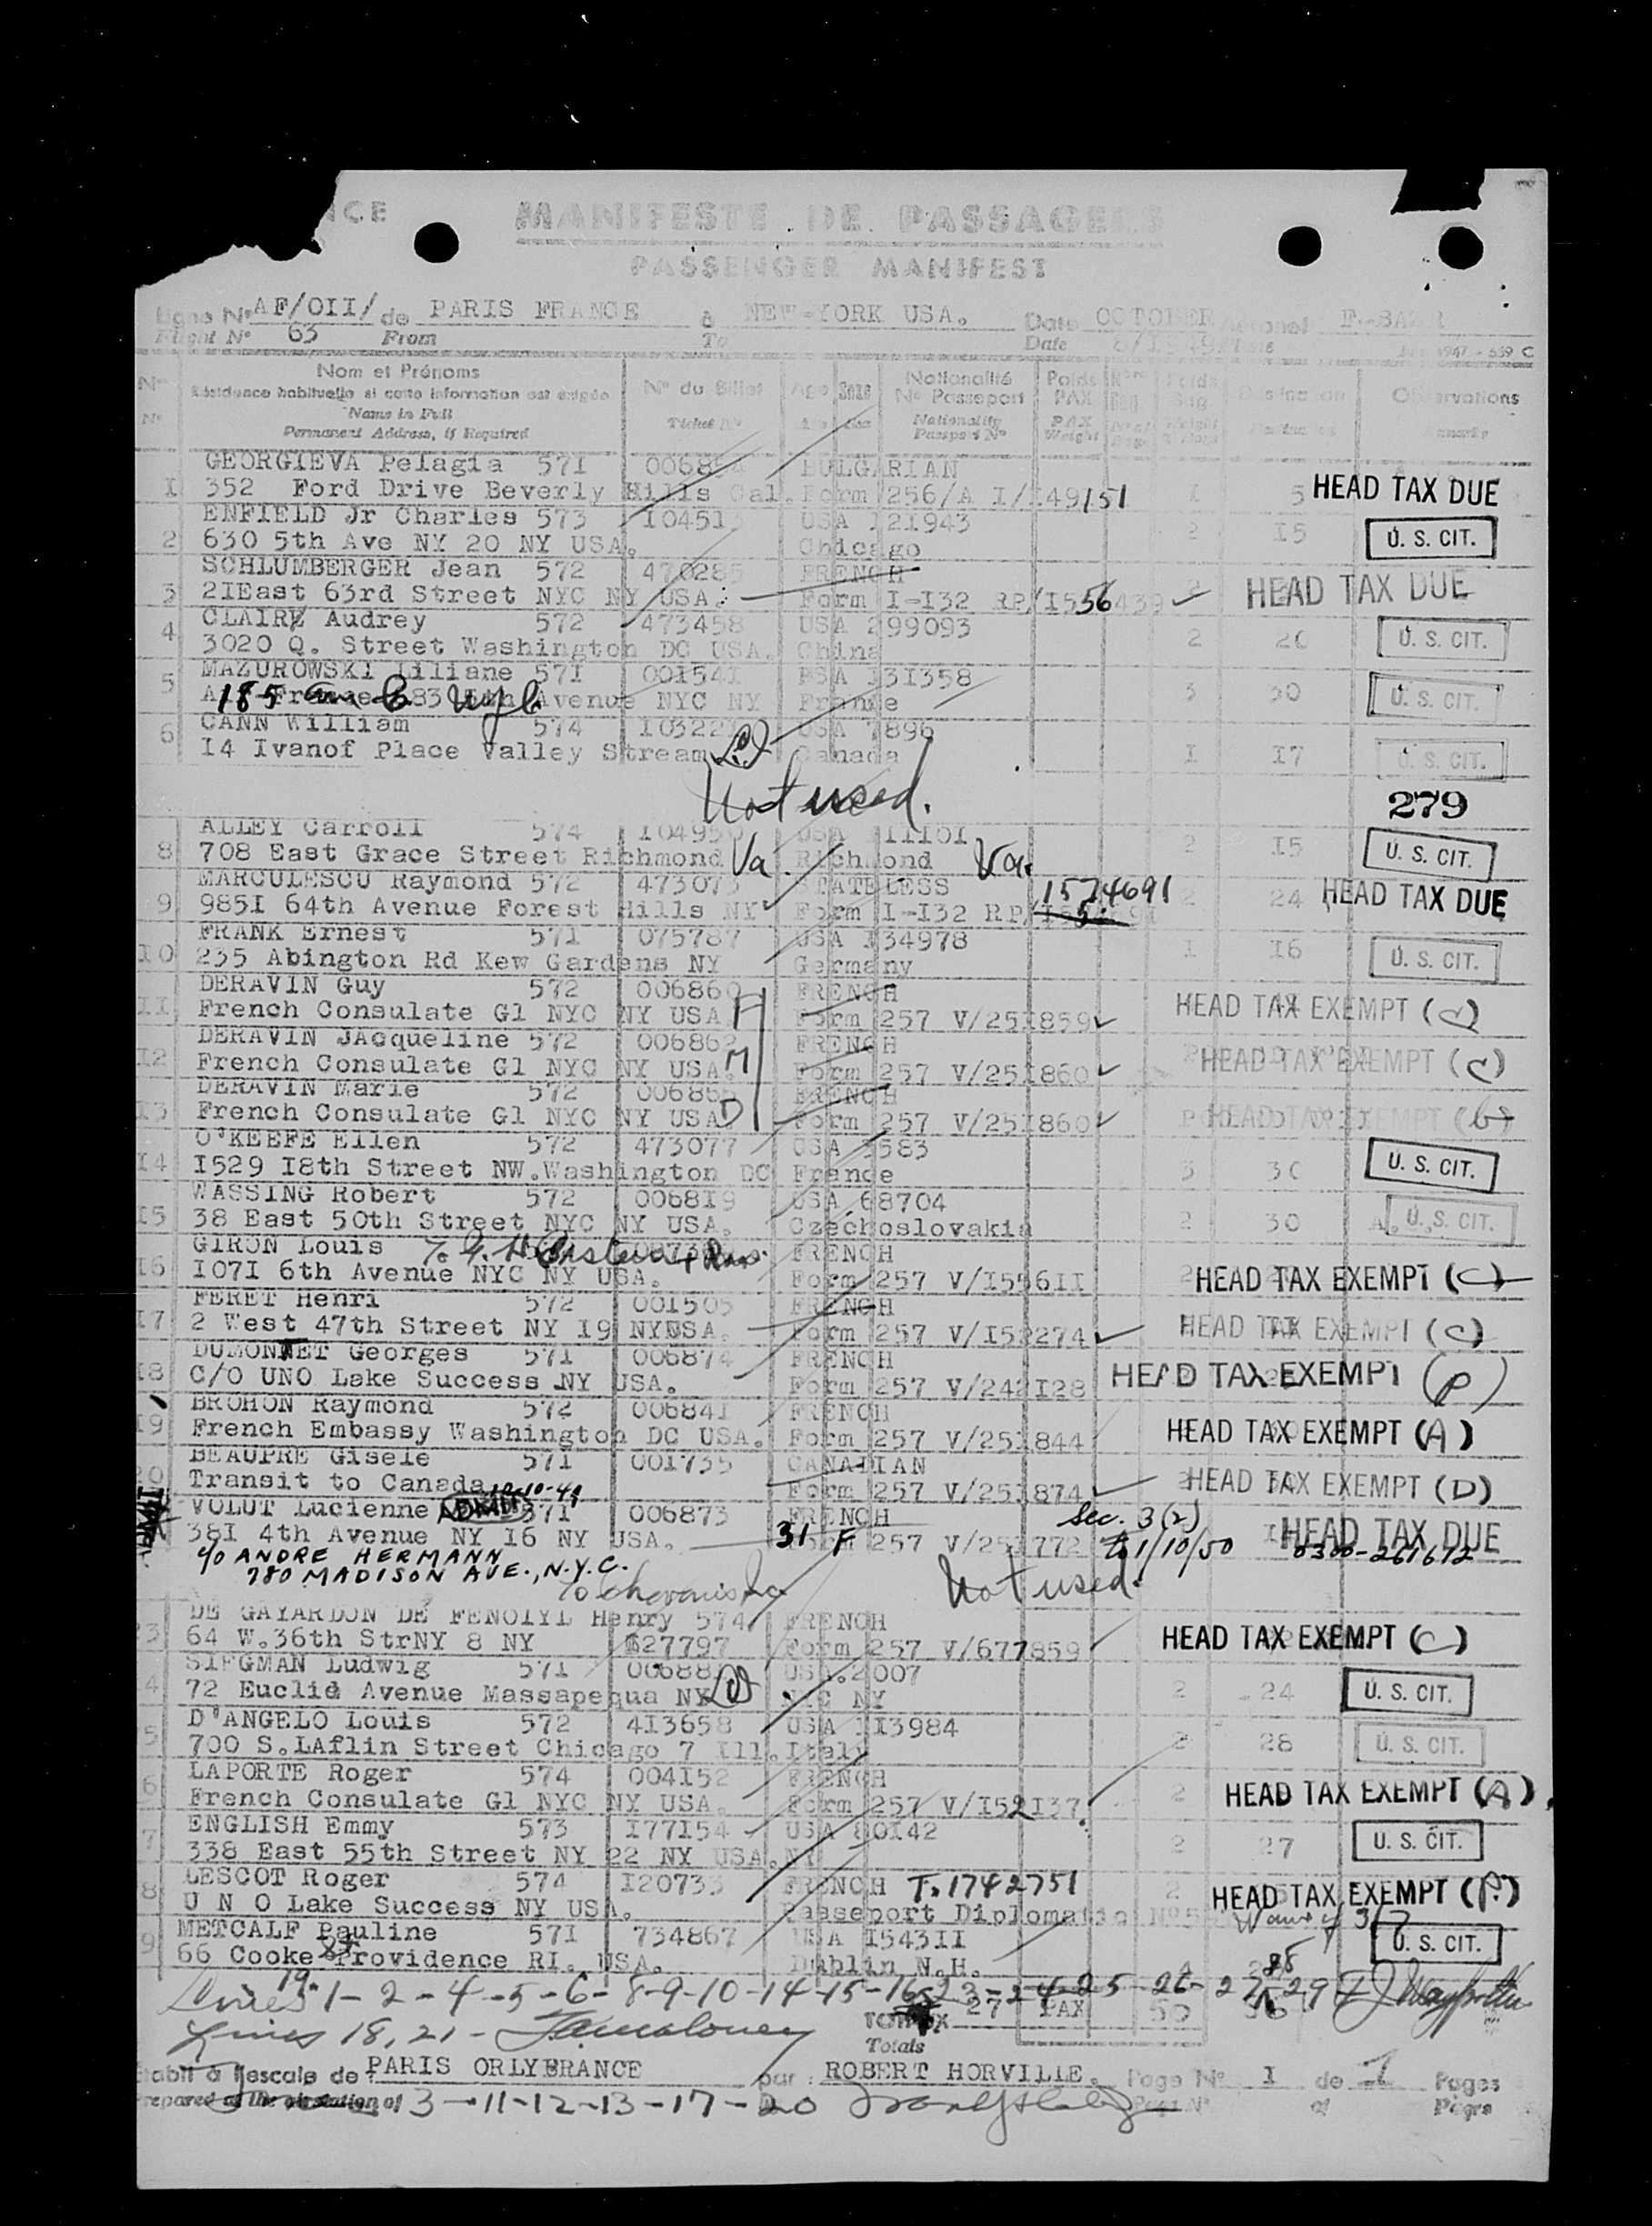 NCE
MANIFESTE DE PASSAGERS
PASSENGER MANIFEST
Ligne Nº AF/OII/ de PARIS FRANCE à NEW-YORK USA. Date OCTOBER
Flight Nº 63 From To Date
Nº Nom et Prénoms Nº du Billet Age Sexe Nationalité Poids
Résidence habituelle si cette information est exigée Nº Passeport PAX
Nº Name in Full Ticket Nº Nationality PAX Observations
Permanent Address, if Required Passport Nº Weight
GEORGIEVA Pelagia 57I BULGARIAN
I 352 Ford Drive Beverly Hills Cal. Form 256/A I/I49151 HEAD TAX DUE
ENFIELD Jr Charles 573 I0451 USA 121943
2 630 5th Ave NY 20 NY USA. Chicago 2 I5 U. S. CIT.
SCHLUMBERGER Jean 572 470285 FRENCH
3 2IEast 63rd Street NYC NY USA. Form I-I32 RP/I556439 HEAD TAX DUE
CLAIRE Audrey 572 473458 USA 299093
4 3020 Q. Street Washington DC USA. China 2 20 U. S. CIT.
MAZUROWSKI Liliane 57I 001541 USA 131358
5 Air France 683 5th Avenue NYC NY France 3 30 U. S. CIT.
CANN William 574 I0322 USA 7896
6 I4 Ivanof Place Valley Stream Canada I I7 U. S. CIT.
Not used.
279
ALLEY Carroll 574 I0495 USA 11101
8 708 East Grace Street Richmond Va. Richmond Va. 2 I5 U. S. CIT.
MARCULESCU Raymond 572 473073 STATELESS 1574691
9 985I 64th Avenue Forest Hills NY Form I-I32 RP/ 2 24 HEAD TAX DUE
FRANK Ernest 571 075787 USA 134978
I0 235 Abington Rd Kew Gardens NY Germany I I6 U. S. CIT.
DERAVIN Guy 572 006860 FRENCH
II French Consulate Gl NYC NY USA H Form 257 V/25I859 HEAD TAX EXEMPT (C)
DERAVIN JAcqueline 572 006862 FRENCH
I2 French Consulate Gl NYC NY USA. M Form 257 V/25I860 HEAD TAX EXEMPT (C)
DERAVIN Marie 572 FRENCH
I3 French Consulate Gl NYC NY USA D Form 257 V/25I860 HEAD TAX EXEMPT (b)
O'KEEFE Ellen 572 473077 USA 1583
I4 I529 I8th Street NW.Washington DC France 3 30 U. S. CIT.
WASSING Robert 572 0068I9 USA 68704
I5 38 East 50th Street NYC NY USA. Czechoslovakia 2 30 U. S. CIT.
GIRON Louis FRENCH
I6 I07I 6th Avenue NYC NY USA. Form 257 V/I556II HEAD TAX EXEMPT (C)
FERET Henri 572 001505 FRENCH
I7 2 West 47th Street NY I9 NYUSA. Form 257 V/I52274 HEAD TAX EXEMPT (C)
DUMONTET Georges 571 006874 FRENCH
I8 C/O UNO Lake Success NY USA. Form 257 V/242I28 HEAD TAX EXEMPT (P)
BROHON Raymond 572 006841 FRENCH
I9 French Embassy Washington DC USA. Form 257 V/25I844 HEAD TAX EXEMPT (A)
BEAUPRE Gisele 571 001735 CANADIAN
20 Transit to Canada 10-10-49 Form 257 V/25I874 HEAD TAX EXEMPT (D)
VOLUT Lucienne ADMIT 571 006873 FRENCH Sec. 3(2)
38I 4th Avenue NY I6 NY USA. 31 F Form 257 V/25I772 to 1/10/50 HEAD TAX DUE
0300-261612
c/o ANDRE HERMANN
780 MADISON AVE., N.Y.C.
Not used.
DE GAYARDON DE FENOIYL Henry 574 FRENCH
23 64 W.36th StrNY 8 NY 627797 Form 257 V/677859 HEAD TAX EXEMPT (C)
SIEGMAN Ludwig 571 USA.2007
4 72 Euclid Avenue Massapequa NY NYC NY 2 24 U. S. CIT.
D'ANGELO Louis 572 4I3658 USA 1I3984
5 700 S.LAflin Street Chicago 7 Ill. Italy 2 28 U. S. CIT.
LAPORTE Roger 574 004I52 FRENCH
6 French Consulate Gl NYC NY USA. Form 257 V/I52I37 2 HEAD TAX EXEMPT (A)
ENGLISH Emmy 573 I77I54 USA 80I42
7 338 East 55th Street NY 22 NY USA. NY 2 27 U. S. CIT.
LESCOT Roger 574 I20733 FRENCH T.1742751
8 U N O Lake Success NY USA. Passeport Diplomatic 2 HEAD TAX EXEMPT (P.)
METCALF Pauline 57I 734867 USA I543II
9 66 Cooke St Providence RI. USA. Dublin N.H. U. S. CIT.
Lines 1-2-4-5-6-8-9-10-14-15-16-23-24-25-26-27-29
19.
27 PAX
Lines 18, 21-
Totals
Etabli à l'escale de PARIS ORLYFRANCE par ROBERT HORVILLE. Page Nº I de 1 Pages
Prepared at the air station of 3-11-12-13-17-20 Page Nº of Pages